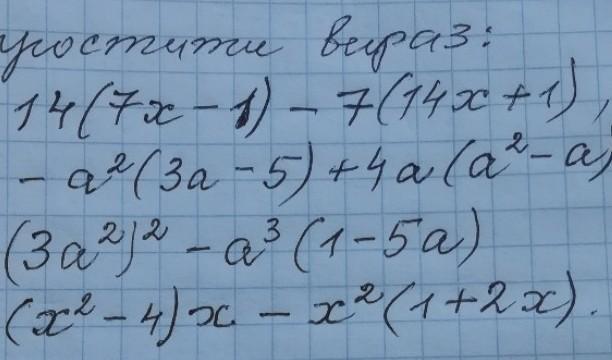 ростити вираз:
14(7x - 1) - 7(14x + 1),
- a²(3a - 5) + 4a(a² - a)
(3a²)² - a³(1 - 5a)
(x² - 4)x - x²(1 + 2x).